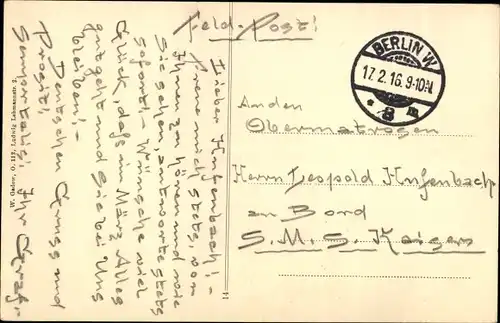 Feld-Post!
BERLIN W.
17.2.16.9-10N.
* 8 m
Lieber Hufenbach! -
Freue mich stets, von
Ihnen zu hören und wie
Sie sehen, antworte stets
sofort. - Wünsche viel
Glück, daß im März Alles
gut geht und Sie bei Uns
bleiben! -
Deutschen Gruss und
Prosit!
Ihr
An den
Obermatrosen
Herrn Leopold Hufenbach
an Bord
S. M. S. Kaiser
W. Sander, O. 112, Ludwig Lehmannstr. 2.